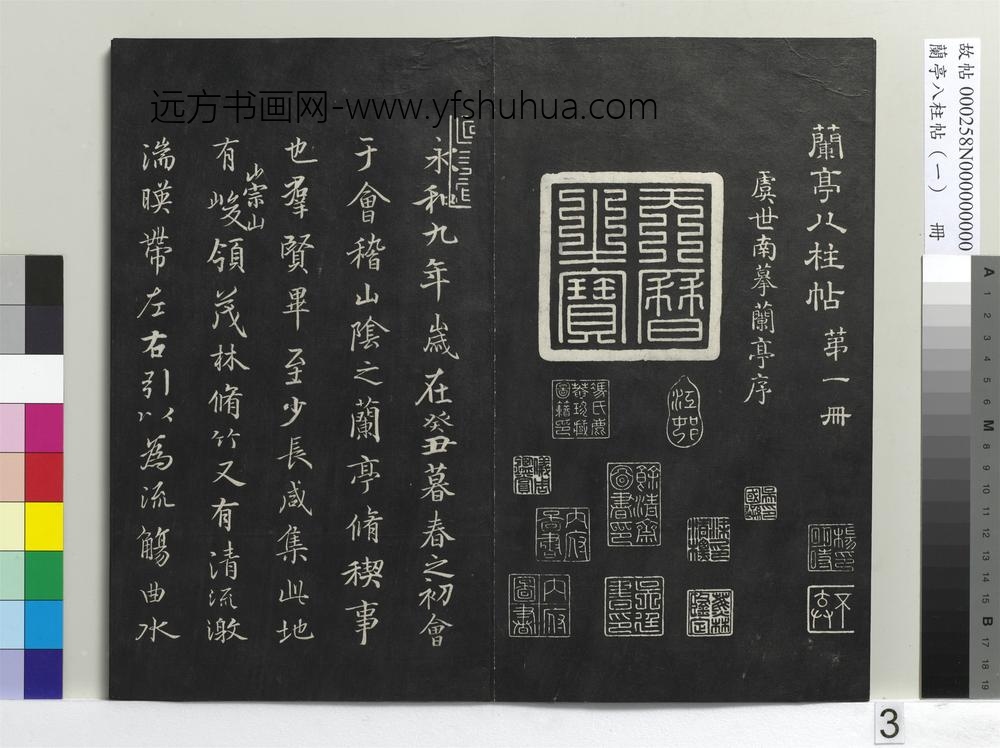 远方书画网-www.yfshuhua.com
故帖 000258N000000000
蘭亭八柱帖（一） 冊
蘭亭八柱帖 第一冊
虞世南摹蘭亭序
天曆之寶
永和九年歲在癸丑暮春之初會
于會稽山陰之蘭亭脩稧事
也羣賢畢至少長咸集此地
有崇山峻領茂林脩竹又有清流激
湍暎帶左右引以為流觴曲水
內府圖書
內府圖書
餘清齋圖書印
A 1 2 3 4 5 6 M 8 9 10 11 12 13 14 15 B 17 18 19
3